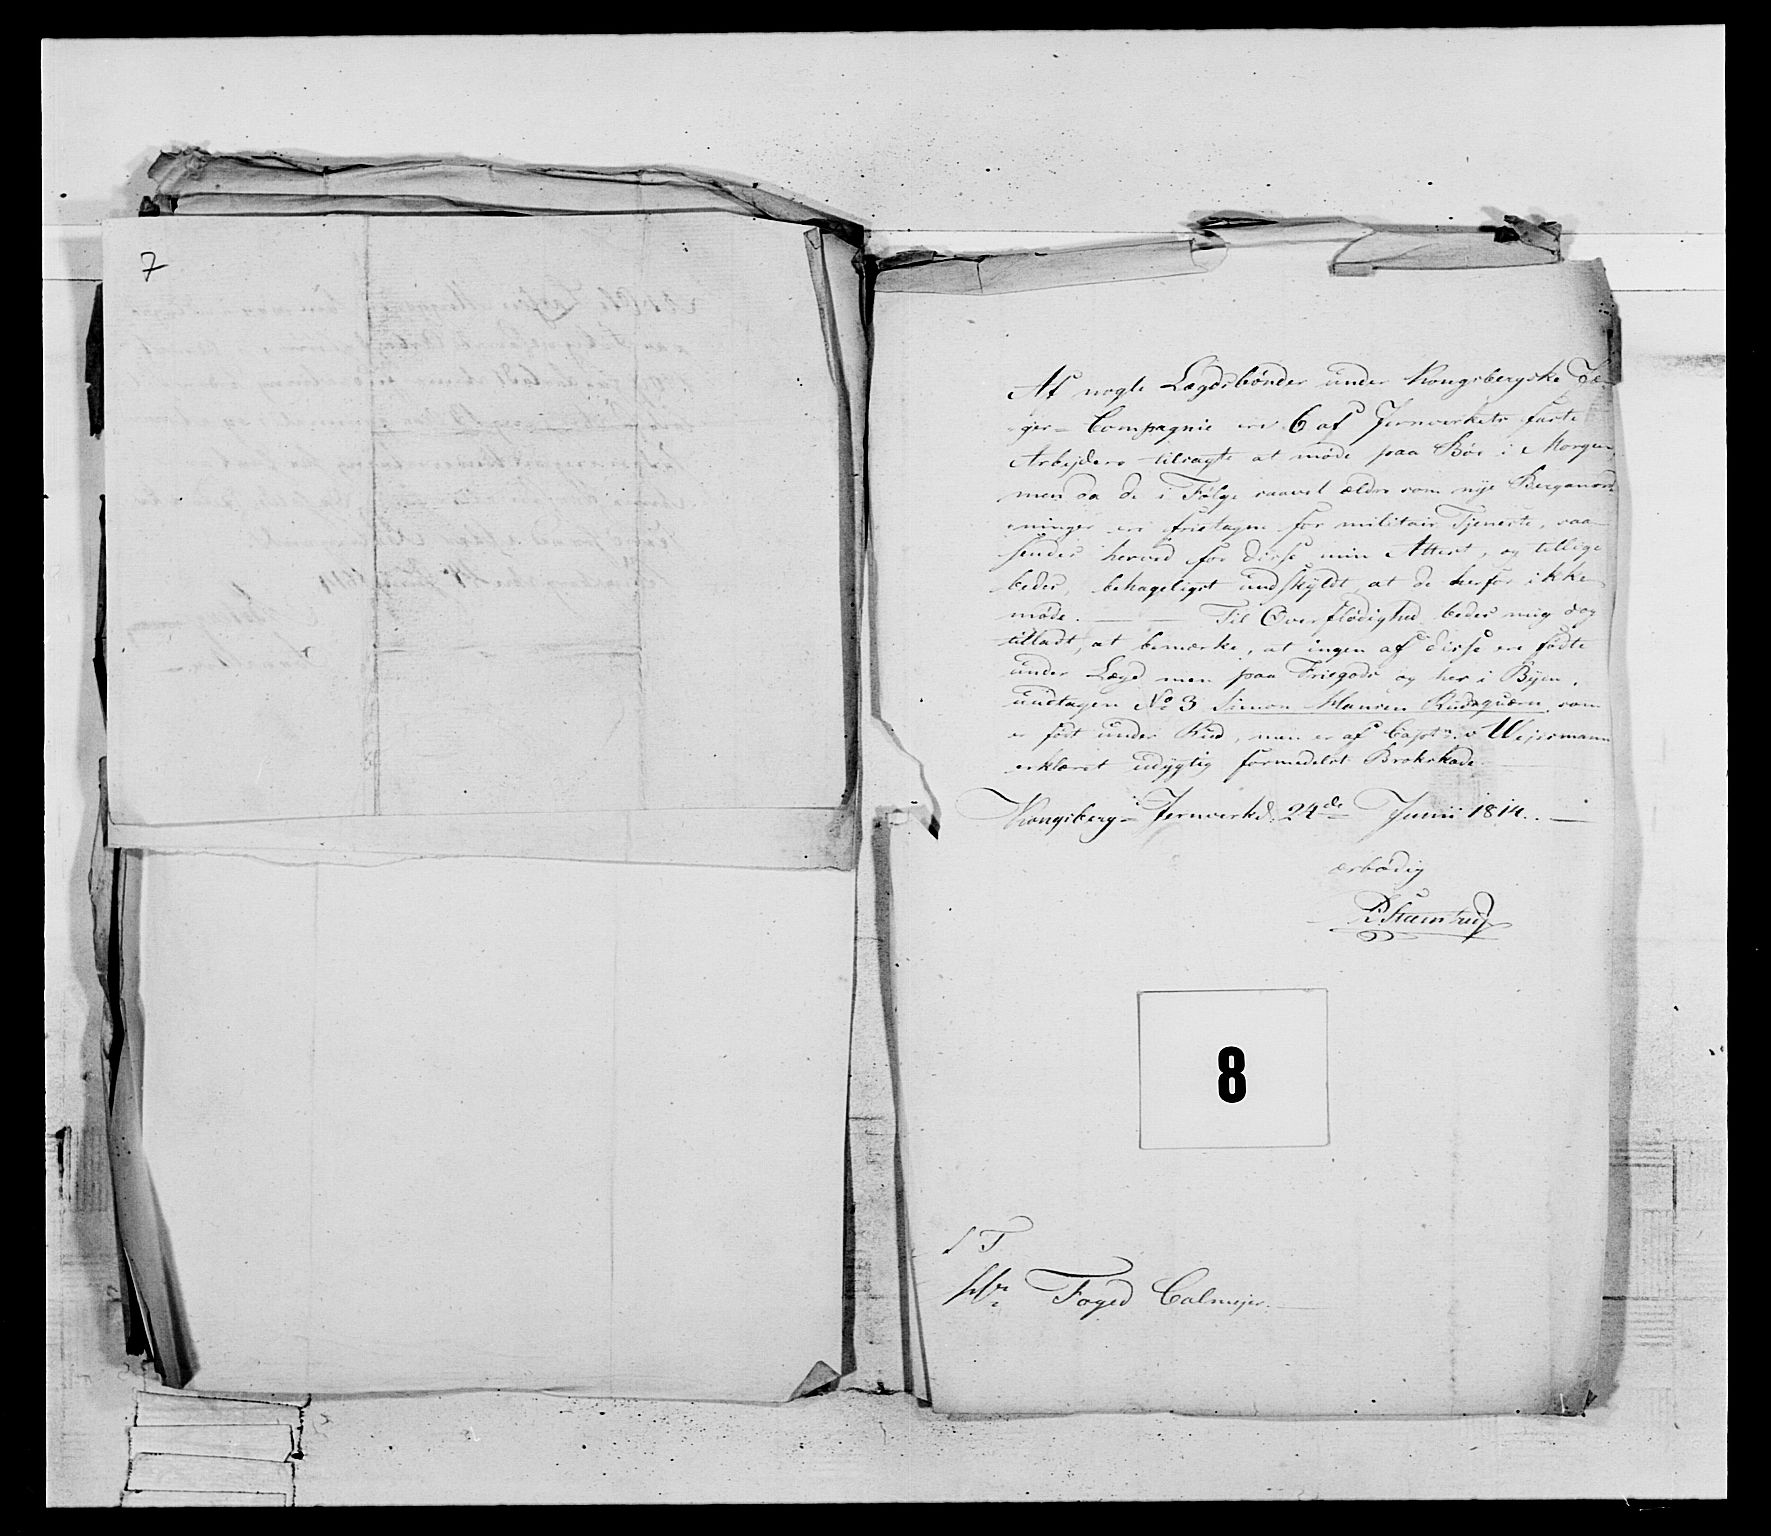 7
Af nogle Lægdsbønder under Kongsbergske Jæ-
ger-Compagnie ere 6 af Jernverkets faste
Arbejdere tilsagte at møde paa Bøe i Morgen,
men da de i Følge saavel ældre som nye Berganord-
ninger ere fritagne for militair Tjeneste, saa
sendes herved for disse min Attest, og tillige
beder, behageligst undskyldt at de herfor ikke
møde. — Til Overflødighed bedes mig dog
tilladt, at bemærke, at ingen af disse ere fødte
under Lægd men paa Friegods og her i Byen,
undtagen No 3 Simon Hansen Rudsquern som
er født under Rud, men er af Captn. v Wejssmann
erklæret udygtig formedelst Brokskade. —
Kongsberg Jernverk d. 24de Junii 1814. —
ærbødig
S T
Hr. Foged Calmejer. —
8